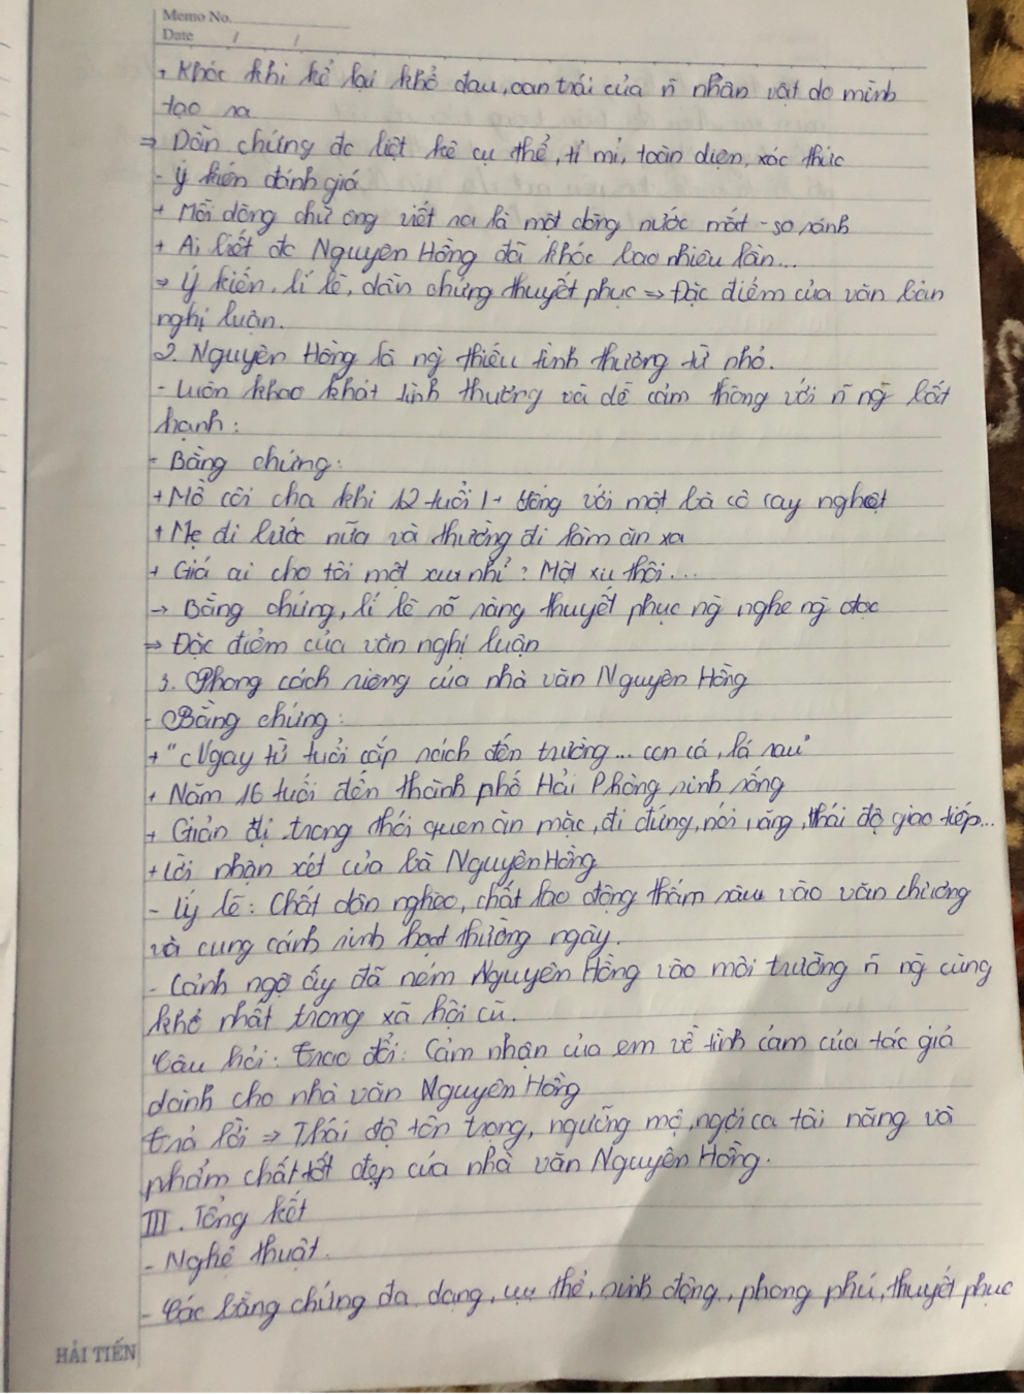 Memo No.
Date / /
+ Khóc khi kể lại khổ đau, oan trái của ñ nhân vật do mình
tạo ra
⇒ Dẫn chứng đc liệt kê cụ thể, tỉ mỉ, toàn diện, xác thực
- Ý kiến đánh giá
+ Mỗi dòng chữ ông viết ra là một dòng nước mắt - so sánh
+ Ai biết đc Nguyên Hồng đã khóc bao nhiêu lần...
⇒ Ý kiến, lí lẽ, dẫn chứng thuyết phục ⇒ Đặc điểm của văn bản
nghị luận.
2. Nguyên Hồng là ng̀ thiếu tình thương từ nhỏ.
- Luôn khao khát tình thương và dễ cảm thông với ñ ng̀ bất
hạnh:
- Bằng chứng:
+ Mồ côi cha khi 12 tuổi sống với một bà cô cay nghiệt
+ Mẹ đi bước nữa và thường đi làm ăn xa
+ Giá ai cho tôi một xu nhỉ? Một xu thôi...
→ Bằng chứng, lí lẽ rõ ràng thuyết phục ng̀ nghe ng̀ đọc
⇒ Đặc điểm của văn nghị luận
3. Phong cách riêng của nhà văn Nguyên Hồng
- Bằng chứng:
+ "Ngay từ tuổi cắp sách đến trường... con cá, lá rau"
+ Năm 16 tuổi đến thành phố Hải Phòng sinh sống
+ Giản dị trong thói quen ăn mặc, đi đứng, nói năng, thái độ giao tiếp...
+ Lời nhận xét của bà Nguyên Hồng
- Lý lẽ: Chất dân nghèo, chất lao động thấm sâu vào văn chương
và cung cách sinh hoạt thường ngày.
- Cảnh ngộ ấy đã ném Nguyên Hồng vào môi trường ñ ng̀ cùng
khổ nhất trong xã hội cũ.
Câu hỏi: trao đổi: Cảm nhận của em về tình cảm của tác giả
dành cho nhà văn Nguyên Hồng
trả lời ⇒ Thái độ tôn trọng, ngưỡng mộ, ngợi ca tài năng và
phẩm chất tốt đẹp của nhà văn Nguyên Hồng.
III. Tổng kết
- Nghệ thuật.
- Các bằng chứng đa dạng, cụ thể, sinh động, phong phú, thuyết phục
HẢI TIẾN